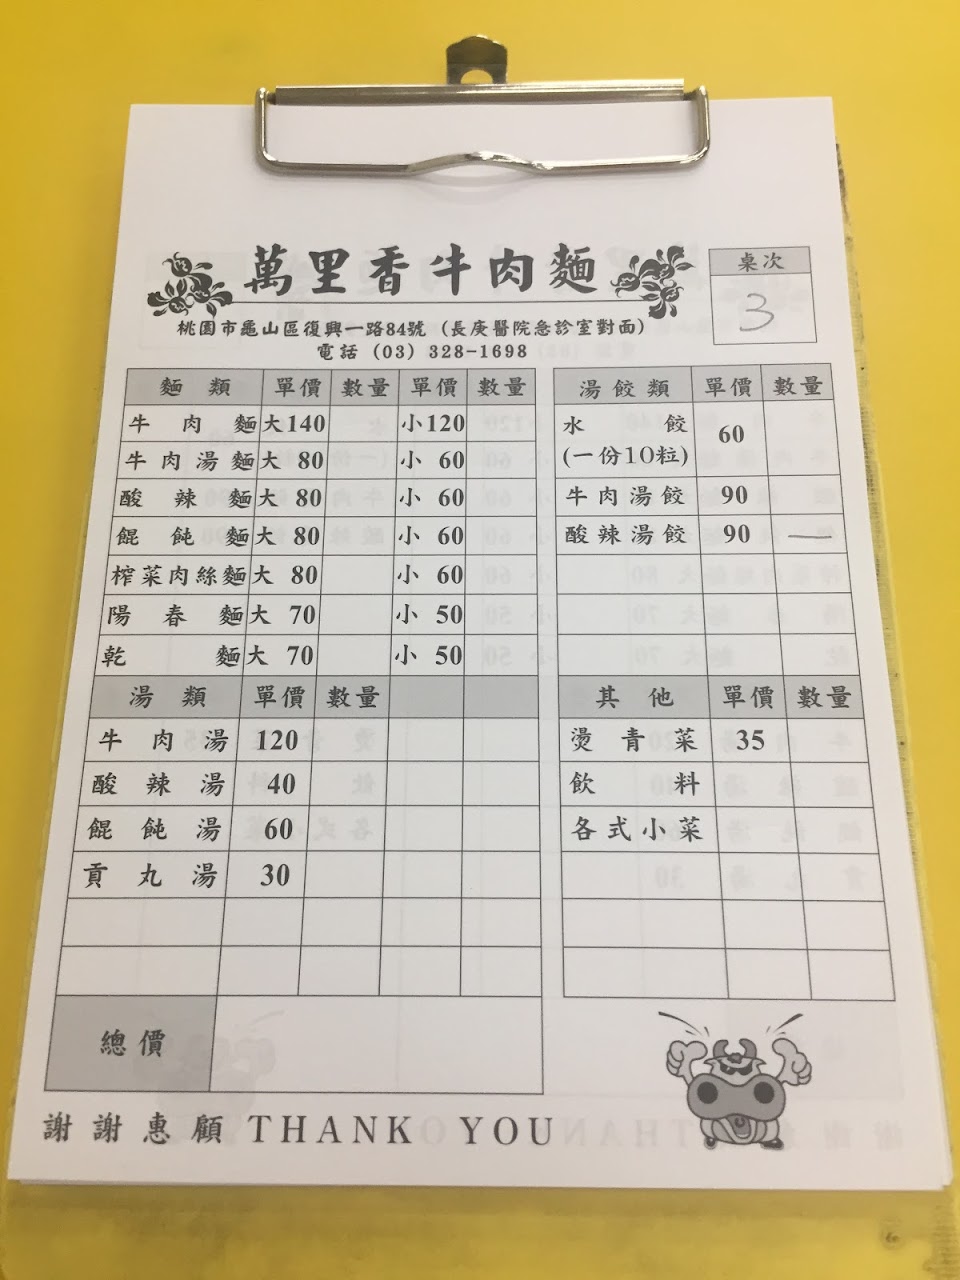 萬里香牛肉麵
桌次
3
桃園市龜山區復興一路84號 (長庚醫院急診室對面)
電話 (03) 328-1698
麵類 單價 數量 單價 數量
牛肉麵 大140 小120
牛肉湯麵 大 80 小 60
酸辣麵 大 80 小 60
餛飩麵 大 80 小 60
榨菜肉絲麵 大 80 小 60
陽春麵 大 70 小 50
乾麵 大 70 小 50
湯類 單價 數量
牛肉湯 120
酸辣湯 40
餛飩湯 60
貢丸湯 30
總價
湯餃類 單價 數量
水餃 60
(一份10粒)
牛肉湯餃 90
酸辣湯餃 90 一
其他 單價 數量
燙青菜 35
飲料
各式小菜
謝謝惠顧 THANK YOU